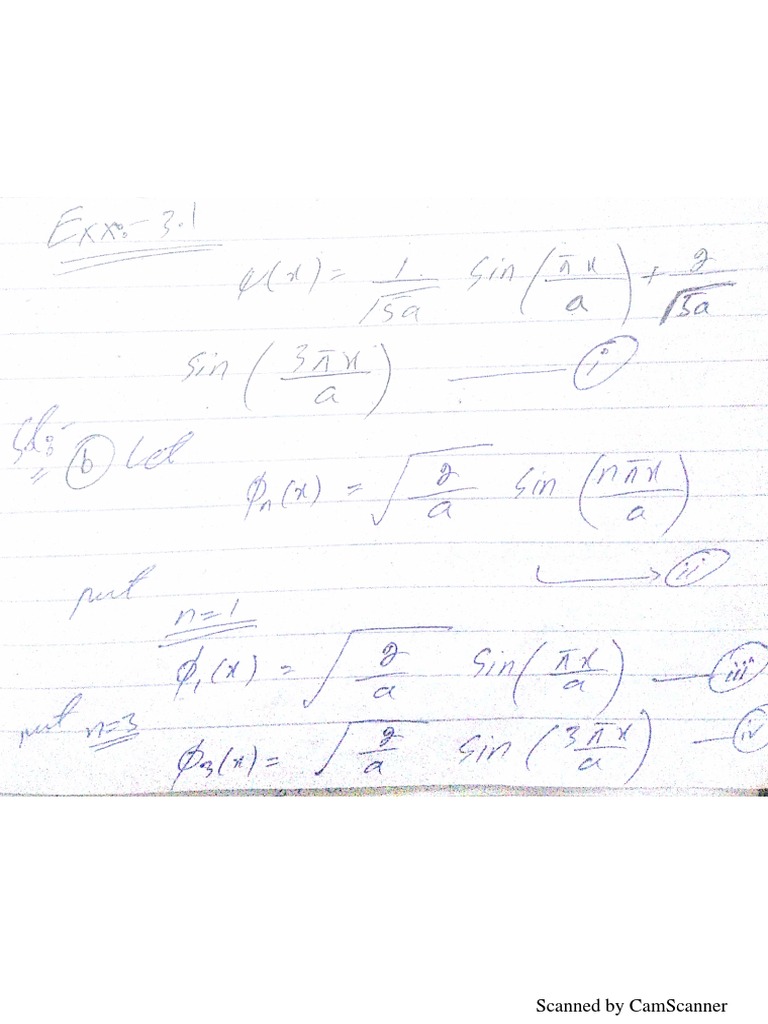 Exx:- 3.1
ψ(x) = 1/√5a sin(πx/a) + 2/√5a
sin(3πx/a) —— (i)
Sol:- (b) Let
ϕn(x) = √(2/a) sin(nπx/a)
→ (ii)
put
n=1
ϕ1(x) = √(2/a) sin(πx/a) — (iii)
put n=3
ϕ3(x) = √(2/a) sin(3πx/a) — (iv)
Scanned by CamScanner